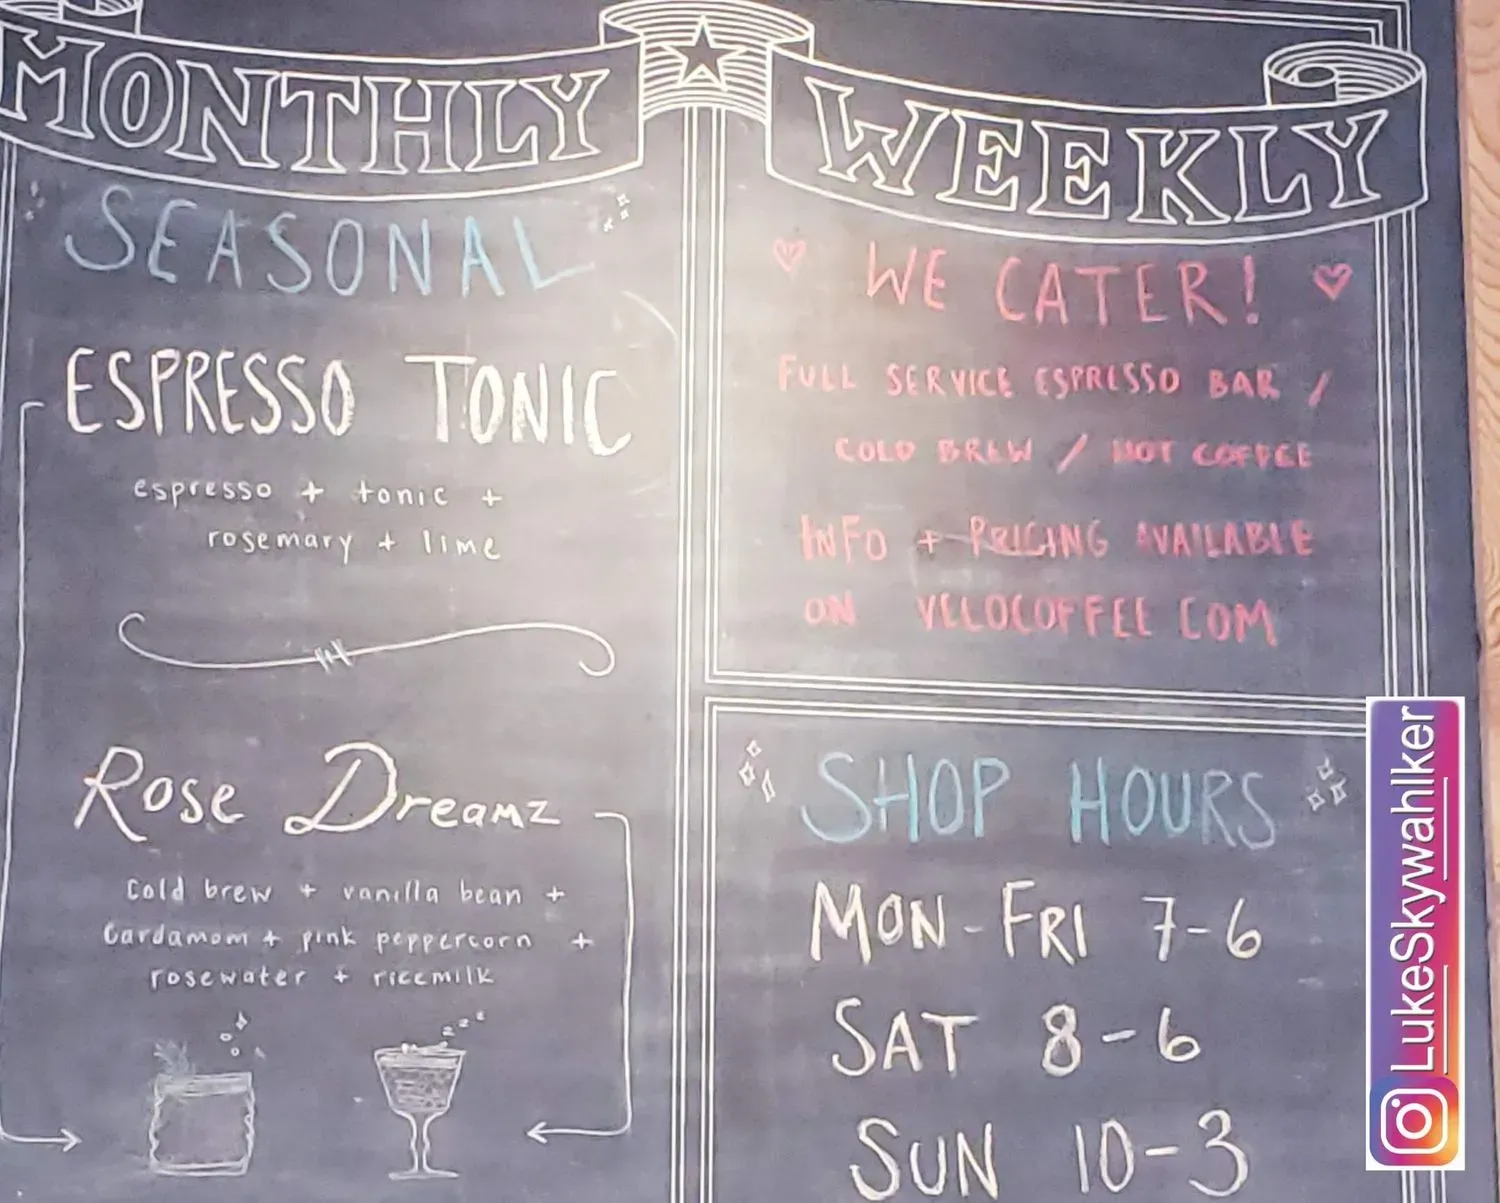 MONTHLY
SEASONAL
ESPRESSO TONIC
espresso + tonic +
rosemary + lime
Rose Dreamz
Cold brew + vanilla bean +
Cardamom + pink peppercorn +
rosewater + ricemilk
zzz
WEEKLY
WE CATER!
FULL SERVICE ESPRESSO BAR /
COLD BREW / HOT COFFEE
INFO + PRICING AVAILABLE
ON VELOCOFFEE COM
SHOP HOURS
MON-FRI 7-6
SAT 8-6
SUN 10-3
LukeSkywahlker